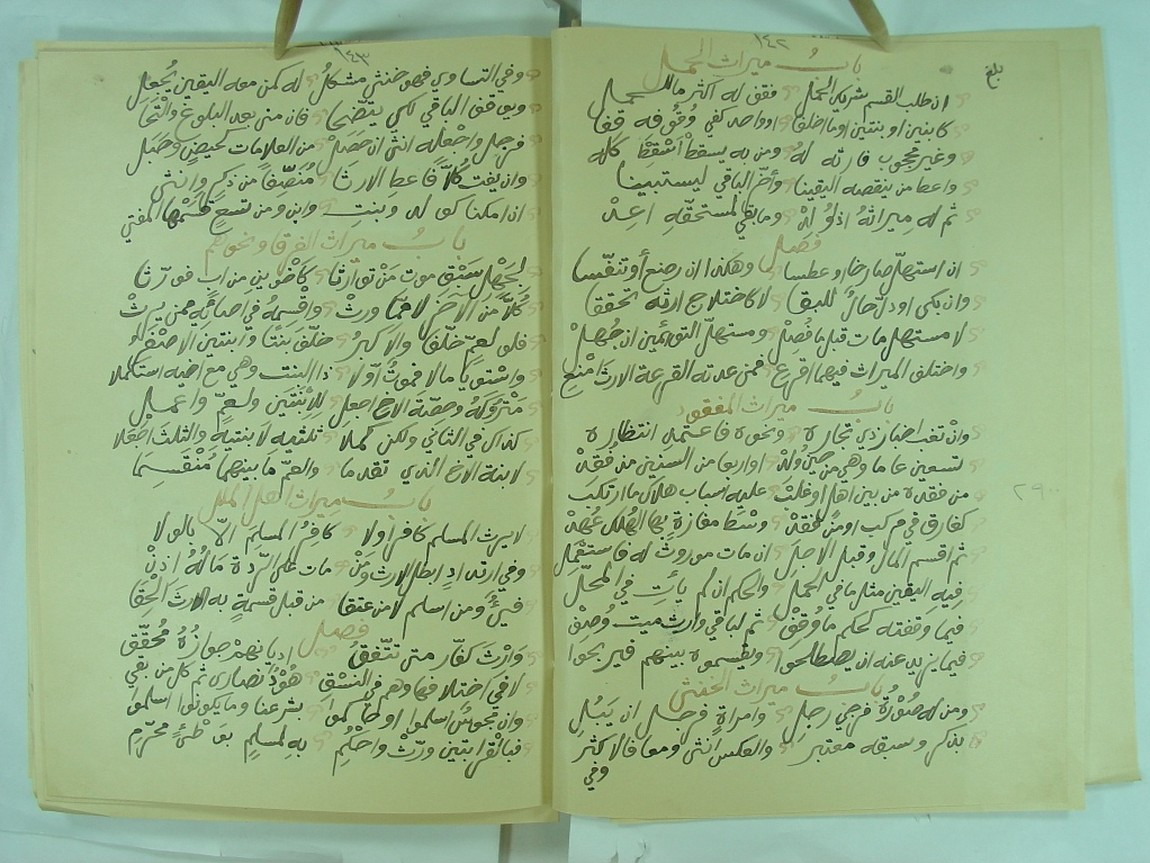 ١٤٢
باب ميراث الحمل
بلغ
ان طلب القسم شريك الحمل فقف له اكثر مال
كابنين او بنتين اوما اختلفا او واحد كفي وقوفه قفا
وغير محجوب فارثه له ومن به يسقط أسقط كله
واعط من ينقصه اليقينا وأخر الباقي ليستبينا
ثم له ميراثه اذ ولد وما بقي لمستحقه اعد
فصل
ان استهل صارخا وعطسا وهكذا ان رضع أو تنفسا
وان بكى او دل حال للبقا لا كاختلاج ارثه تحققا
لا مستهل مات قبل ما فصل ومستهل التوأمين ان جهل
واختلف الميراث فيهما اقرع فمن عدته القرعة الارث امنع
باب ميراث المفقود
وان تغب اخبار ذي تجاره ونحوه فاعتمد انتظاره
تسعين عاما وهي من حين ولد او اربعا من السنين منذ فقد
من فقده من بين اهل او غلبت عليه اسباب هلاك ما ارتكب
كغارق في مركب ومن فقد وسط مفازة بها الهلك عهد
ثم اقسم المال وقبل الاجل ان مات موروث له فاستعمل
فيه اليقين مثل ما في الحمل والحكم ان لم يأت في المحل
فيما وقفته كحكم ما وقف ثم لباقي وارث ميت وصف
فيما يزيد عنه ان يصطلحوا ويقسموه بينهم فيربحوا
باب ميراث الخنثى
ومن له صورة فرجي رجل وامراة فرجل ان يبل
بذكر وسبقه معتبر والعكس انثى ومعا فالاكثر
وفي
٢٩٠٠
١٤٣
وفي التساوي فهو خنثى مشكل له كمن معه اليقين يجعل
ويوقف الباقي لكي يتضحا فان متى بعد البلوغ والتحا
فرجل واجعله انثى ان حصل من العلامات كحيض وحبل
وان يفت كلا فاعط الارثا منصفا من ذكر وانثى
ان امكنا كولد وبنت وابن ومن تسع قسمها المفتي
باب ميراث الغرقا ونحوهم
لجهل سبق موت من توارثا كأخوين من اب فورثا
كلا من الآخر لا مما ورث واقسمه في احيائه ممن يرث
فلو لعم خلفا والاكبر خلف بنتا وابنتين الاصغر
واستويا مالا فموت أولا ذا البنت وهي مع اخيه استكملا
متروكه وحصة الاخ اجعل للابنتين ولعم واعمل
كذاك في الثاني ولكن كملا ثلثيه لابنتيه والثلث اجعلا
لابنة الاخ الذي تقدما والعم ما بينهما منقسما
باب ميراث اهل الملل
لا يرث المسلم كافر ولا كافر المسلم الا بالولا
وفي ارتداد ابطل الارث ومن مات على الردة ماله اذن
فيء ومن اسلم لا من عتقا من قبل قسمة به الارث الحقا
فصل
وارث كفار متى تتفق اديانهم جوازه محقق
لا في اختلافها وهم في النسق هود نصارى ثم كل من بقي
وان مجوس اسلموا او حاكموا بشرعنا وما يكونوا اسلموا
فبالقرابتين ورث واحكم به لمسلم بوطئ محرم